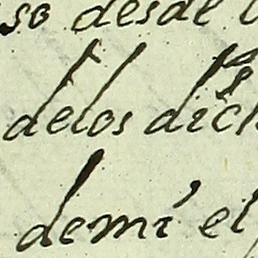 so desde
delos dich
demi el